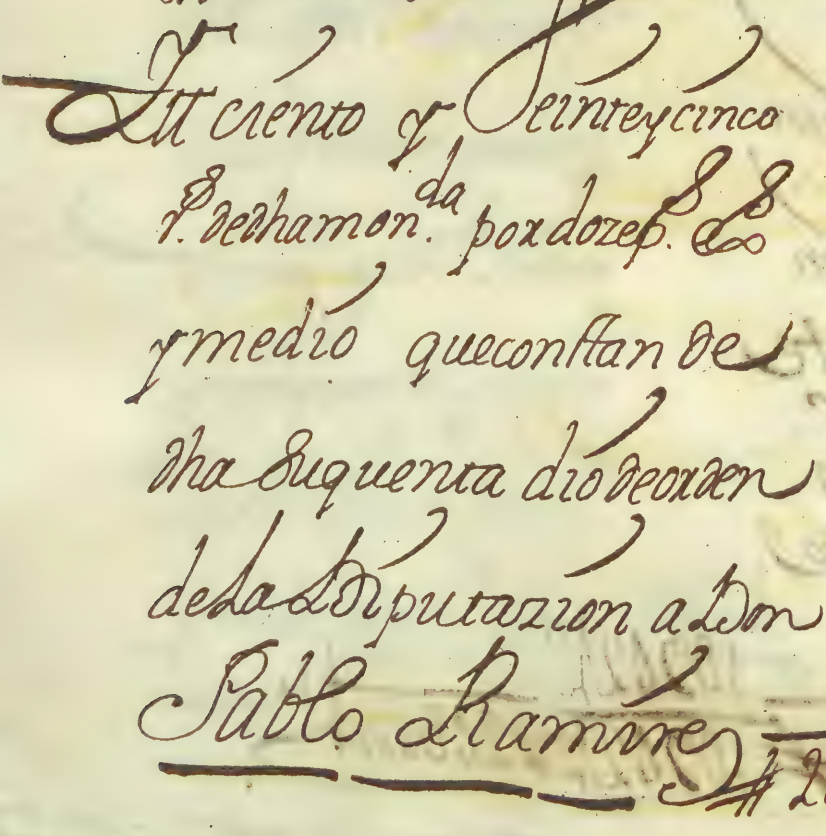 Itt ciento y Veinteycinco
r.s dedhamon.da pordozep.s
ymedio queconstan de
dha Suquenta dio deorden
dela Diputazion a Don
Pablo Ramirez #